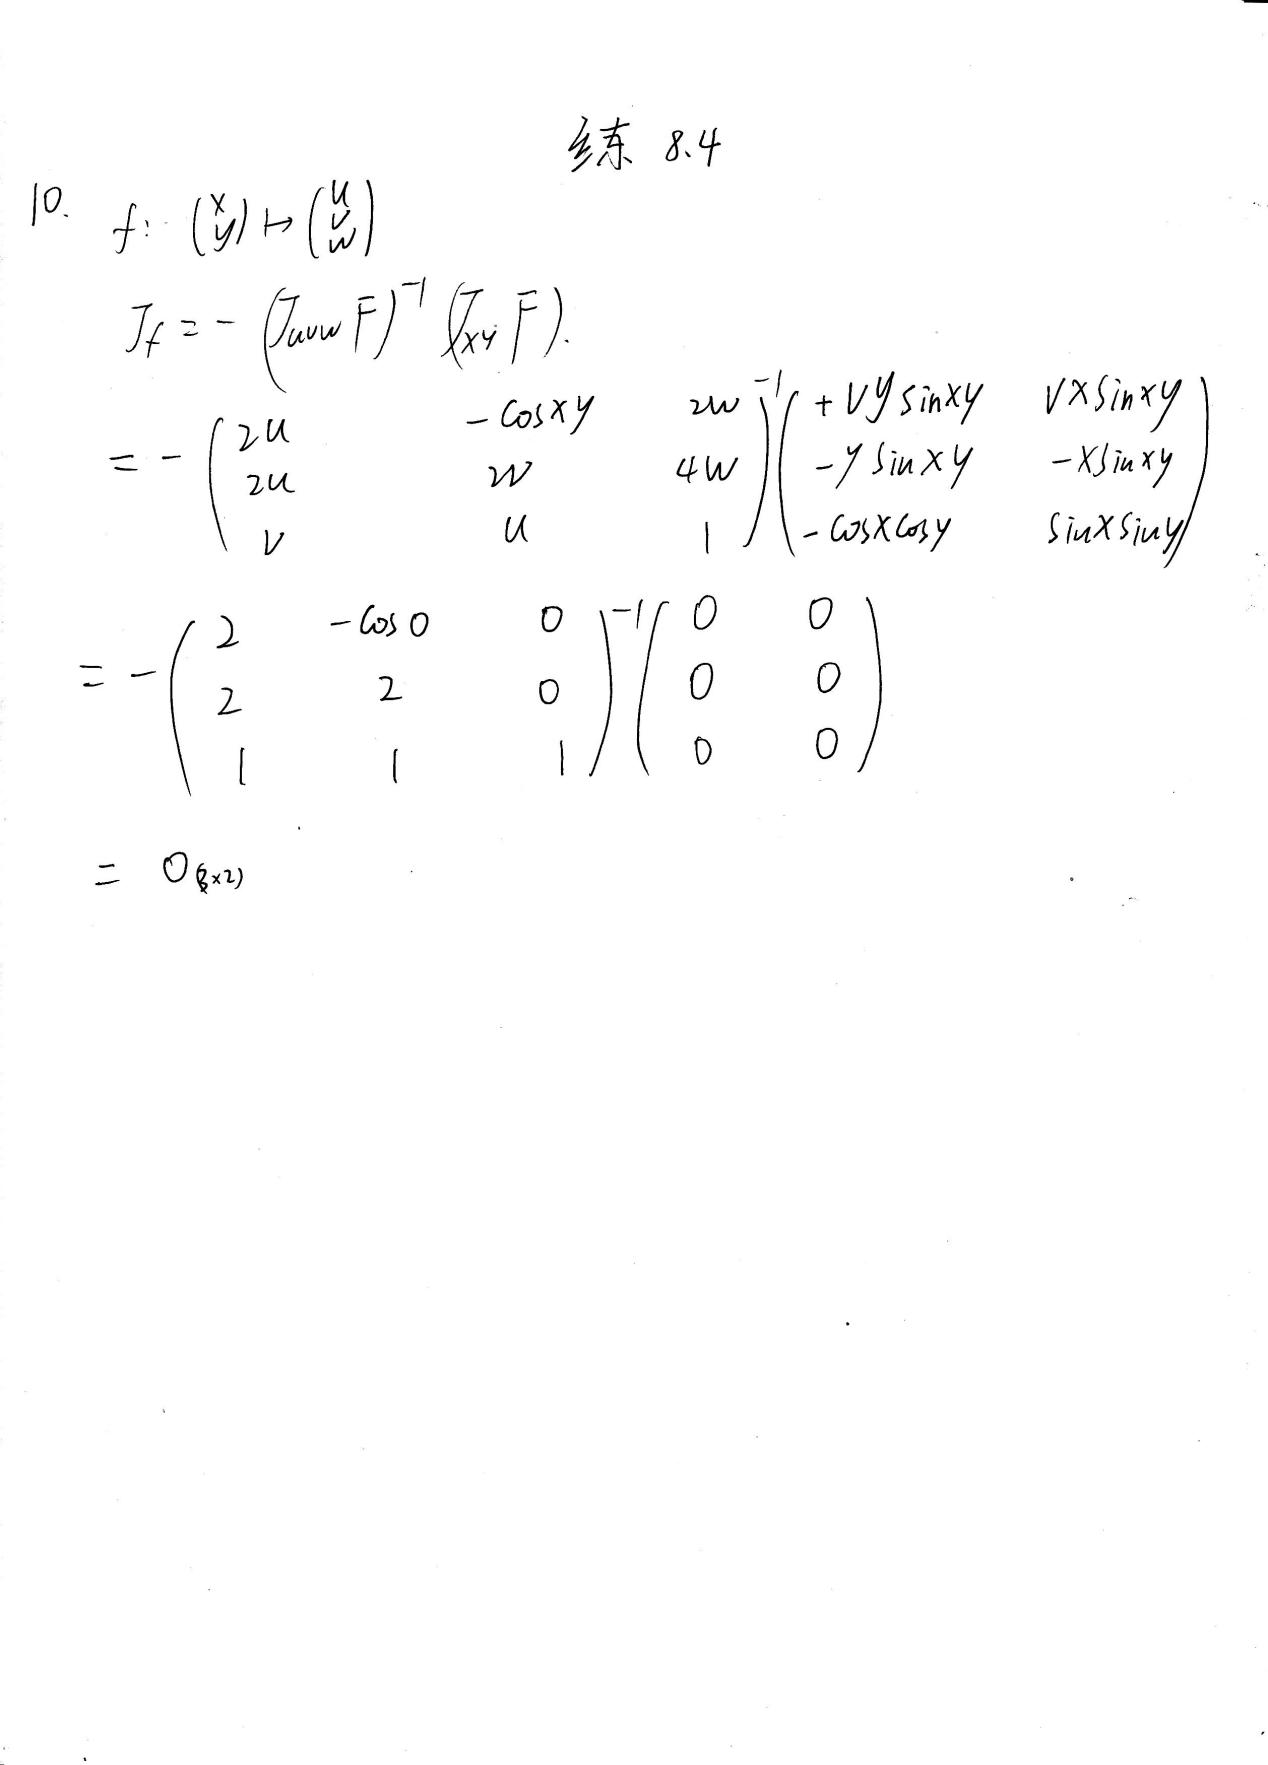 练 8.4
10. f: (x y) ↦ (u v w)
J_f = - (J_{uvw} F)^{-1} (J_{xy} F).
= - ( 2u -cosxy 2w ; 2u 2v 4w ; v u 1 )^{-1} ( +vysinxy vxsinxy ; -ysinxy -xsinxy ; -cosxcosy sinxsiny )
= - ( 2 -cos0 0 ; 2 2 0 ; 1 1 1 )^{-1} ( 0 0 ; 0 0 ; 0 0 )
= O_{(3×2)}